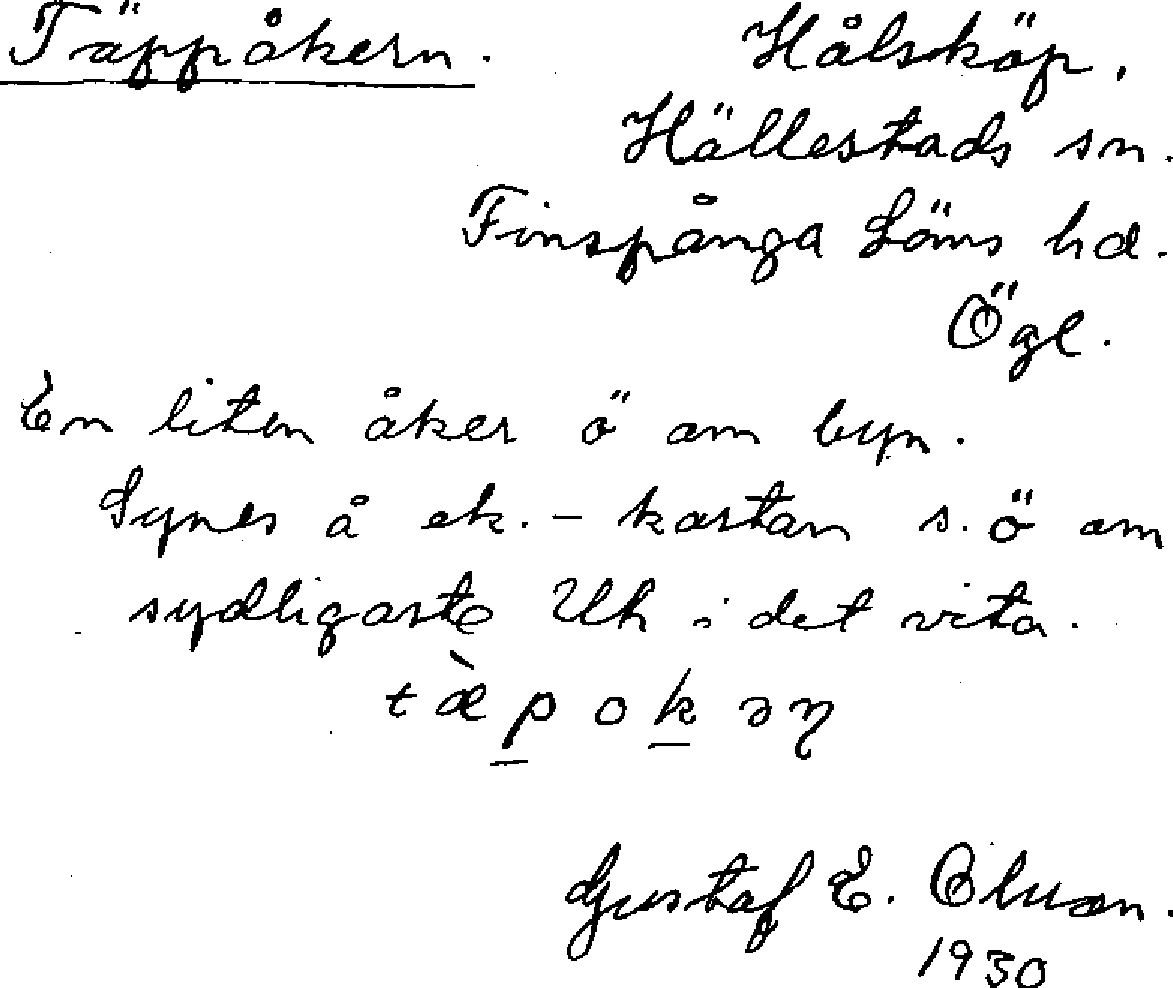 Täppåkern. Hålsköp.
Hällestads sn.
Finspånga Läns hd.
Ögl.
En liten åker ö om byn.
Synes å ek.- kartan s.ö om
sydligaste Uh i det vita.
tæ̀p̲ok̲əɳ
Gustaf E.
1930